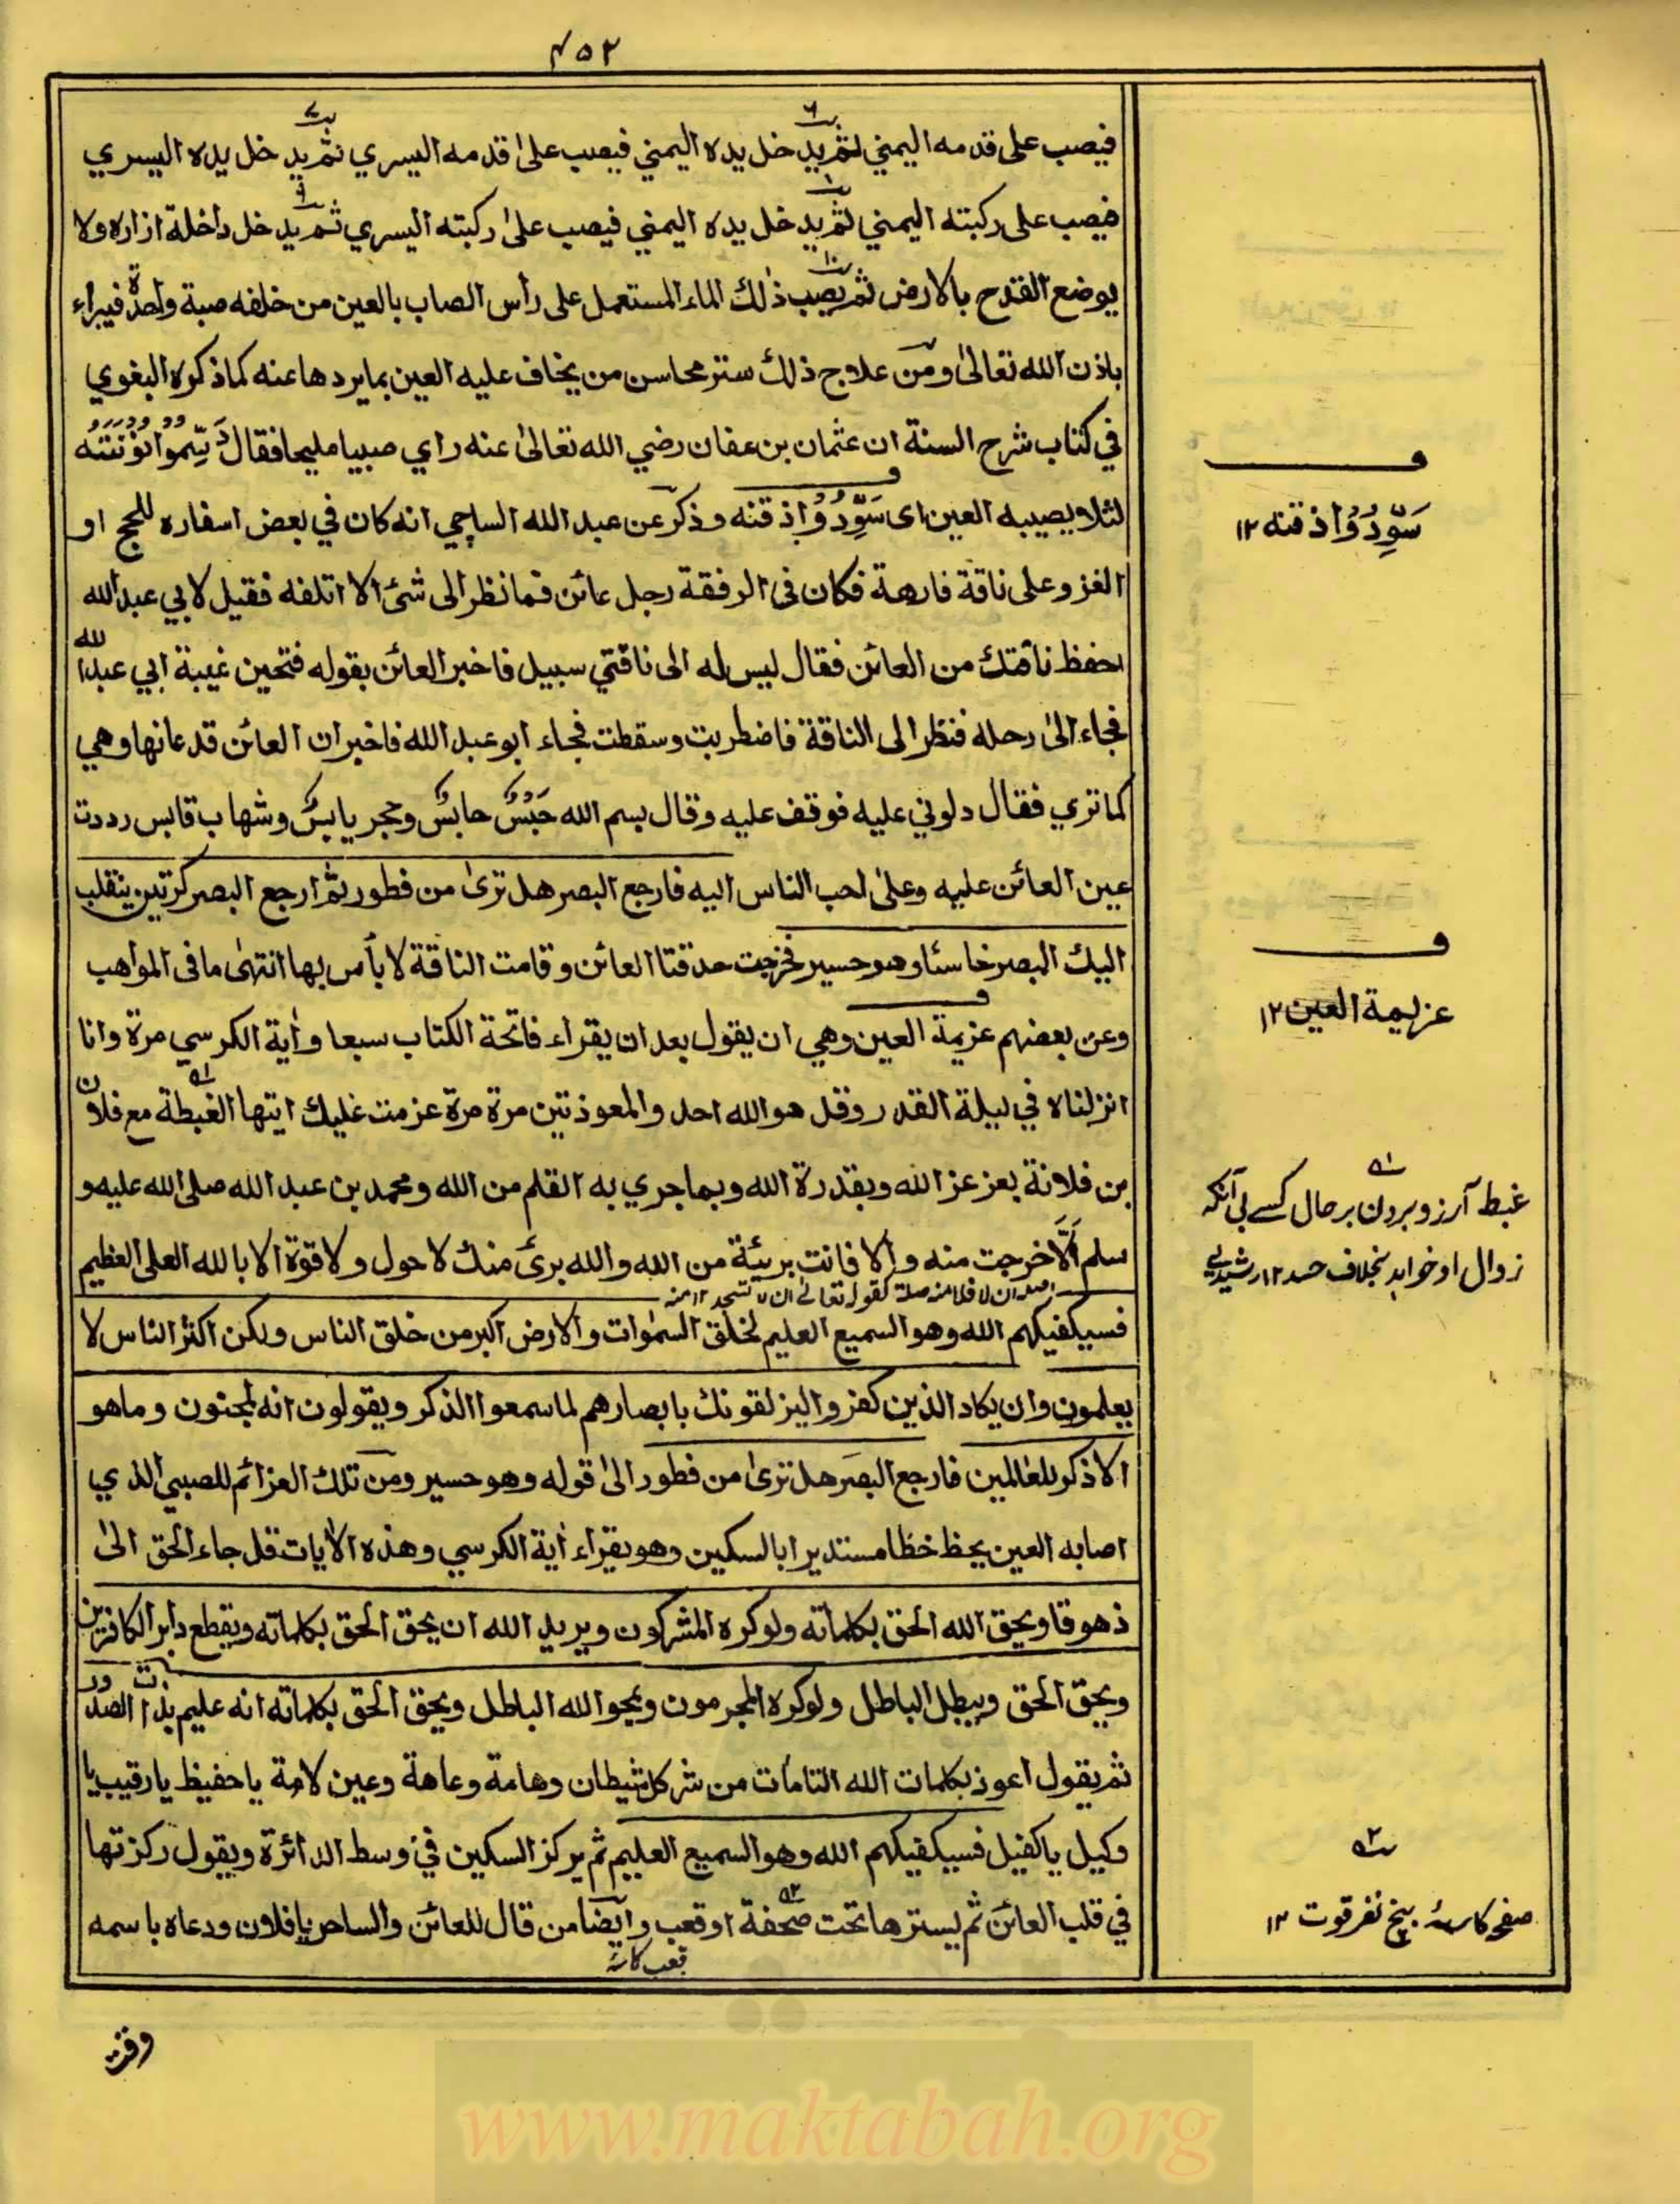 ۴۵۲
فيصب على قدمه اليمني ثم يدخل يده اليمني فيصب علىٰ قدمه اليسري ثم يدخل يده اليسري
فيصب على ركبته اليمني ثم يدخل يده اليمني فيصب علىٰ ركبته اليسري ثم يدخل داخلة ازاره ولا
يوضع القدح بالارض ثم يصب ذٰلك الماء المستعمل على رأس الصاب بالعين من خلفه صبة واحدة فيبراء
باذن الله تعالىٰ ومن علاج ذلك ستر محاسن من يخاف عليه العين بما يردها عنه كما ذكره البغوي
في كتاب شرح السنة ان عثمان بن عفان رضي الله تعالىٰ عنه راي صبيا مليحا فقال دَسِّمُوا نُوْنَتَهُ
لئلا يصيبه العين اى سَوِّدُوْا ذقنه وذكر عن عبد الله الساجي انه كان في بعض اسفاره للحج او
الغزو على ناقة فارهة فكان فى الرفقة رجل عائن فما نظر الى شئ الا اتلفه فقيل لابي عبد الله
احفظ ناقتك من العائن فقال ليس له الى ناقتي سبيل فاخبر العائن بقوله فتحين غيبة ابي عبد الله
فجاء الىٰ رحله فنظر الى الناقة فاضطربت وسقطت فجاء ابو عبد الله فاخبر ان العائن قد عانها وهي
كما تري فقال دلوني عليه فوقف عليه وقال بسم الله حَبْسٌ حابسٌ وحجر يابسٌ وشهاب قابس رددت
عين العائن عليه وعلىٰ احب الناس اليه فارجع البصر هل ترىٰ من فطور ثم ارجع البصر كرتين ينقلب
اليك البصر خاسئا وهو حسير فخرجت حدقتا العائن وقامت الناقة لا بأس بها انتهٰى ما فى المواهب
وعن بعضهم عزيمة العين وهي ان يقول بعد ان يقراء فاتحة الكتاب سبعا واٰية الكرسي مرة وانا
انزلناه في ليلة القدر وقل هو الله احد والمعوذتين مرة مرة عزمت عليك ايتها الغبطة مع فلان
بن فلانة بعز عز الله وبقدرة الله وبما جري به القلم من الله ومحمد بن عبد الله صلى الله عليه و
سلم اَلَّا خرجت منه والا فانت بريئة من الله والله برئ منك لا حول ولا قوة الا بالله العلى العظيم
اصله ان لا فلا منه صلة كقوله تعالىٰ ان لا تسجد ۱۲ منه
فسيكفيكهم الله وهو السميع العليم لخلق السمٰوات والارض اكبر من خلق الناس ولكن اكثر الناس لا
يعلمون وان يكاد الذين كفروا ليزلقونك بابصارهم لما سمعوا الذكر ويقولون انه لمجنون وما هو
الا ذكر للعالمين فارجع البصر هل ترىٰ من فطور الىٰ قوله وهو حسير ومن تلك العزائم للصبي الذي
اصابه العين يخط خطا مستديرا بالسكين وهو يقراء اٰية الكرسي وهذه الاٰيات قل جاء الحق الىٰ
ذهوقا ويحق الله الحق بكلماته ولو كره المشركون ويريد الله ان يحق الحق بكلماته ويقطع دابر الكافرين
ويحق الحق ويبطل الباطل ولو كره المجرمون ويمحو الله الباطل ويحق الحق بكلماته انه عليم بذات الصدور
ثم يقول اعوذ بكلمات الله التامات من شر كل شيطان وهامة وعاهة وعين لامة يا حفيظ يا رقيب يا
وكيل يا كفيل فسيكفيكهم الله وهو السميع العليم ثم يركز السكين في وسط الدائرة ويقول ركزتها
في قلب العائن ثم يسترها تحت صحفة او قعب وايضا من قال للعائن والساحر يا فلان ودعاه باسمه
قعب كاسۂ
سَوِّدُوْا ذقنه ۱۲
عزيمة العين ۱۲
غبط آرزو بردن بر حال کسے بی آنکه
زوال او خواہد بخلاف حسد ۱۲ رشیدی
وقت
www.maktabah.org